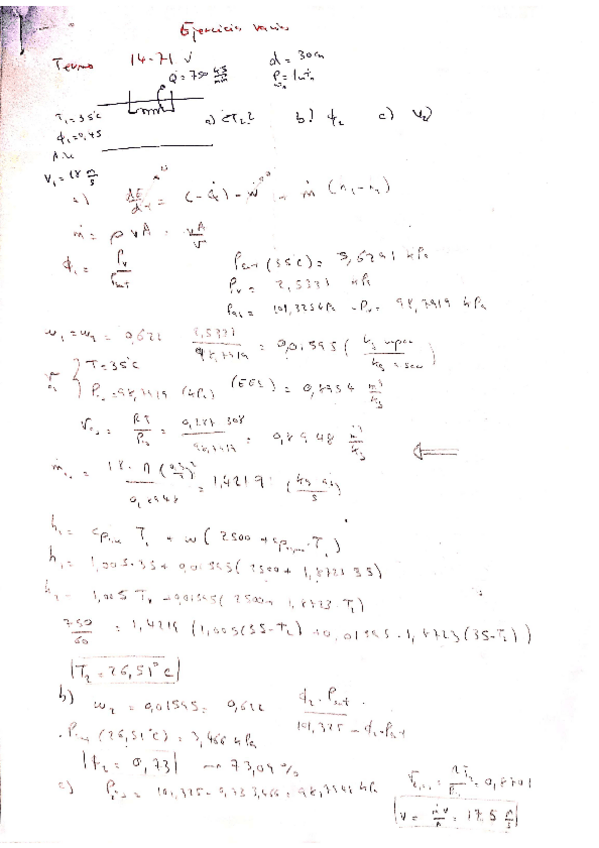 Ejercicios varios
Termo 14-71 d = 30 cm
Q = 750 kJ/min P = 1 atm
T₁ = 35°C a) ¿T₂? b) ϕ₂ c) v₂)
ϕ₁ = 0,45
V₁ = 18 m/s
a) dE/dt = (-Q) - W + ṁ (h₁ - h₂)
ṁ = ρ v A = vA/v
ϕ₁ = Pv/Psat Psat (35°C) = 5,6291 kPa
Pv = 2,5331 kPa
Pa₁ = 101,325 kPa - Pv = 98,7919 kPa
w₁ = w₂ = 0,622 2,5331/98,7919 = 0,01595 (kg vapor/kg a seco)
T = 35°C
Pa = 98,7919 (kPa) (EES) = 0,8954 m³/kg
= RT/Pa = 0,287 308/98,7919 = 0,8948 m³/kg
= 18 · Π (0,3/2)²/0,8948 = 1,4219 (kg as/s)
h₁ = cp T₁ + w (2500 + cp · T₁)
h₁ = 1,005·35 + 0,01595 (2500 + 1,8723 35)
h₂ = 1,005 T₂ + 0,01595 (2500 + 1,8723 · T₂)
750/60 = 1,4219 (1,005 (35-T₂) + 0,01595 · 1,8723 (35-T₂))
T₂ = 26,51°C
b) w₂ = 0,01595 = 0,622 ϕ₂·Psat/101,325 - ϕ₂·Psat
Psat (26,51°C) = 3,466 kPa
ϕ₂ = 0,73 → 73,09 %
c) = 101,325 - 0,73 3,466 = 98,7941 kPa = RT₂/P = 0,8701
v = ṁv/A = 17,5 m/s